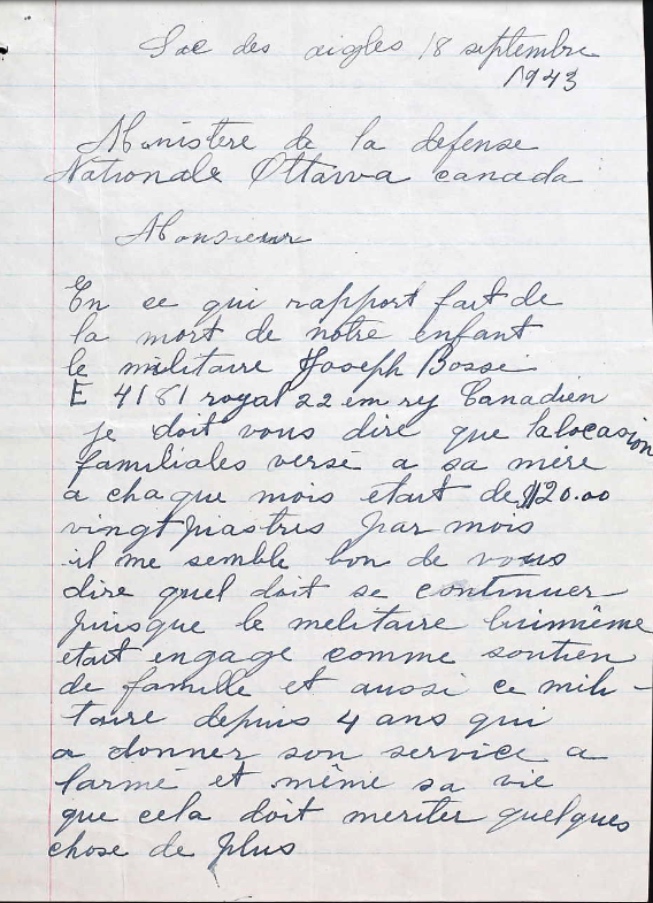 Lac des aigles 18 septembre
1943
Ministere de la defense
Nationale Ottawa canada
Monsieur
En ce qui rapport fait de
la mort de notre enfant
le militaire Joseph Bossé
E 4181 royal 22 em ry Canadien
je doit vous dire que lalocasion
familiales versé a sa mère
a chaque mois etait de $20.00
vingt piastres par mois
il me semble bon de vous
dire quel doit se continuer
puisque le melitaire luimême
etait engage comme soutien
de famille et aussi ce mili-
taire depuis 4 ans qui
a donner son service a
larmé et même sa vie
que cela doit meriter quelques
chose de plus